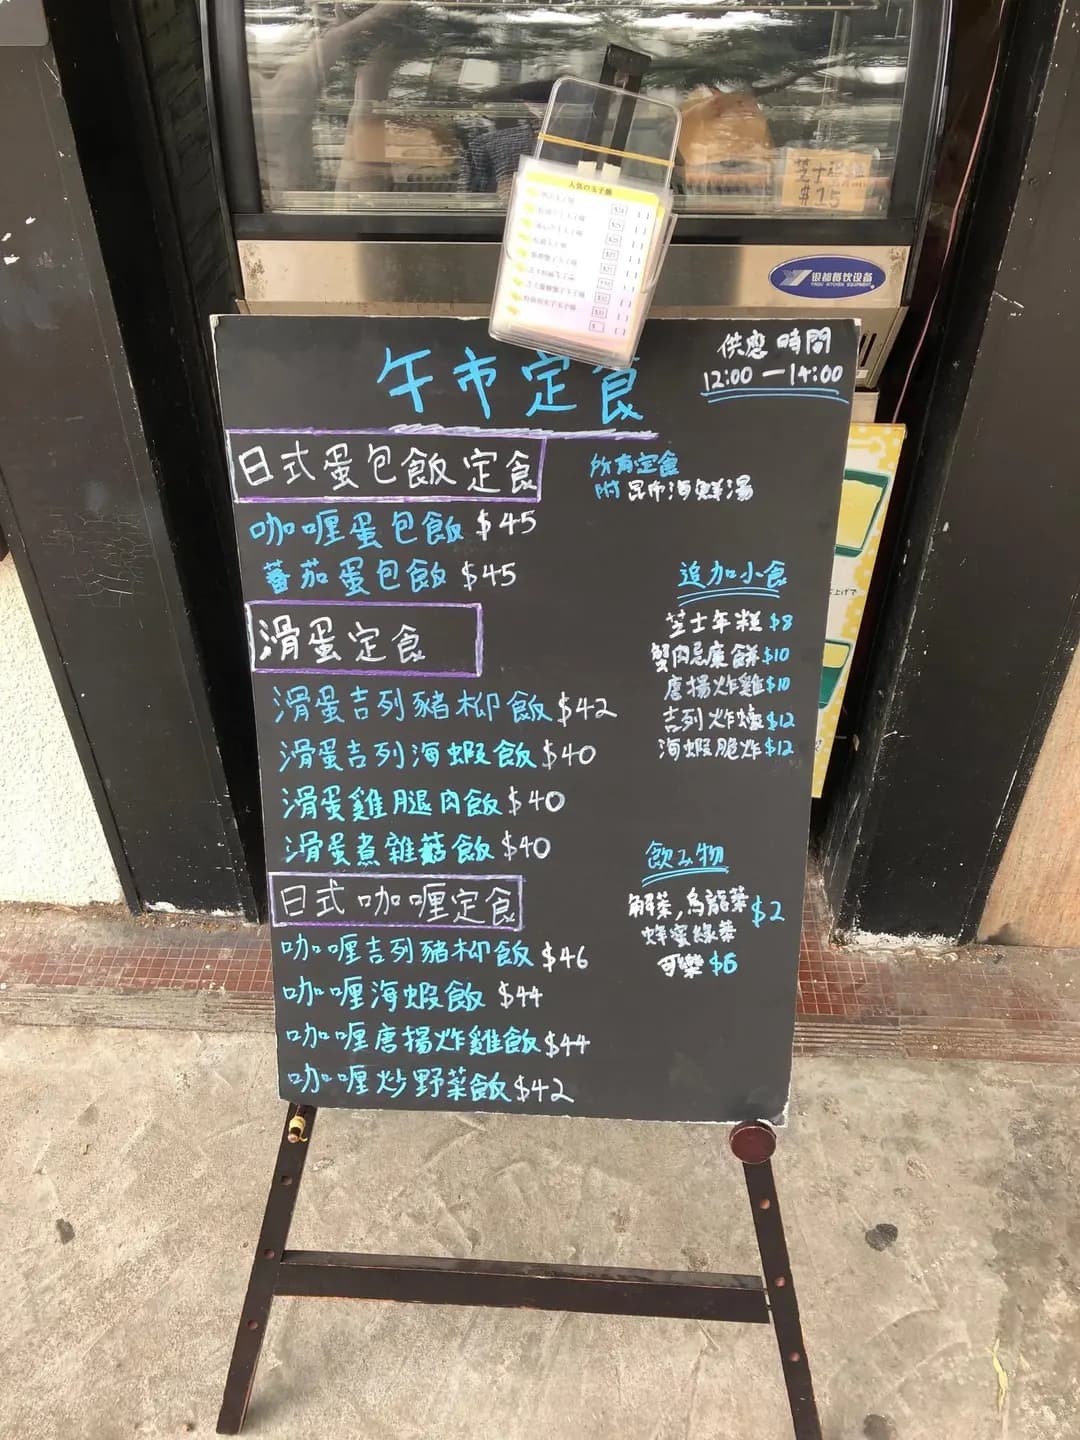 芝士
$15
人気の玉子燒
银都餐饮设备
YINDU KITCHEN EQUIPMENT
午市定食
供應時間
12:00 — 14:00
日式蛋包飯定食
所有定食
附昆布海鮮湯
咖喱蛋包飯 $45
蕃茄蛋包飯 $45
滑蛋定食
滑蛋吉列豬柳飯 $42
滑蛋吉列海蝦飯 $40
滑蛋雞腿肉飯 $40
滑蛋煮雜菇飯 $40
日式咖喱定食
咖喱吉列豬柳飯 $46
咖喱海蝦飯 $44
咖喱唐揚炸雞飯 $44
咖喱炒野菜飯 $42
追加小食
芝士年糕 $8
蟹肉忌廉餅 $10
唐揚炸雞 $10
吉列炸蠔 $12
海蝦脆炸 $12
飲み物
解茶,烏龍茶 $2
蜂蜜綠茶
可樂 $6
上げで